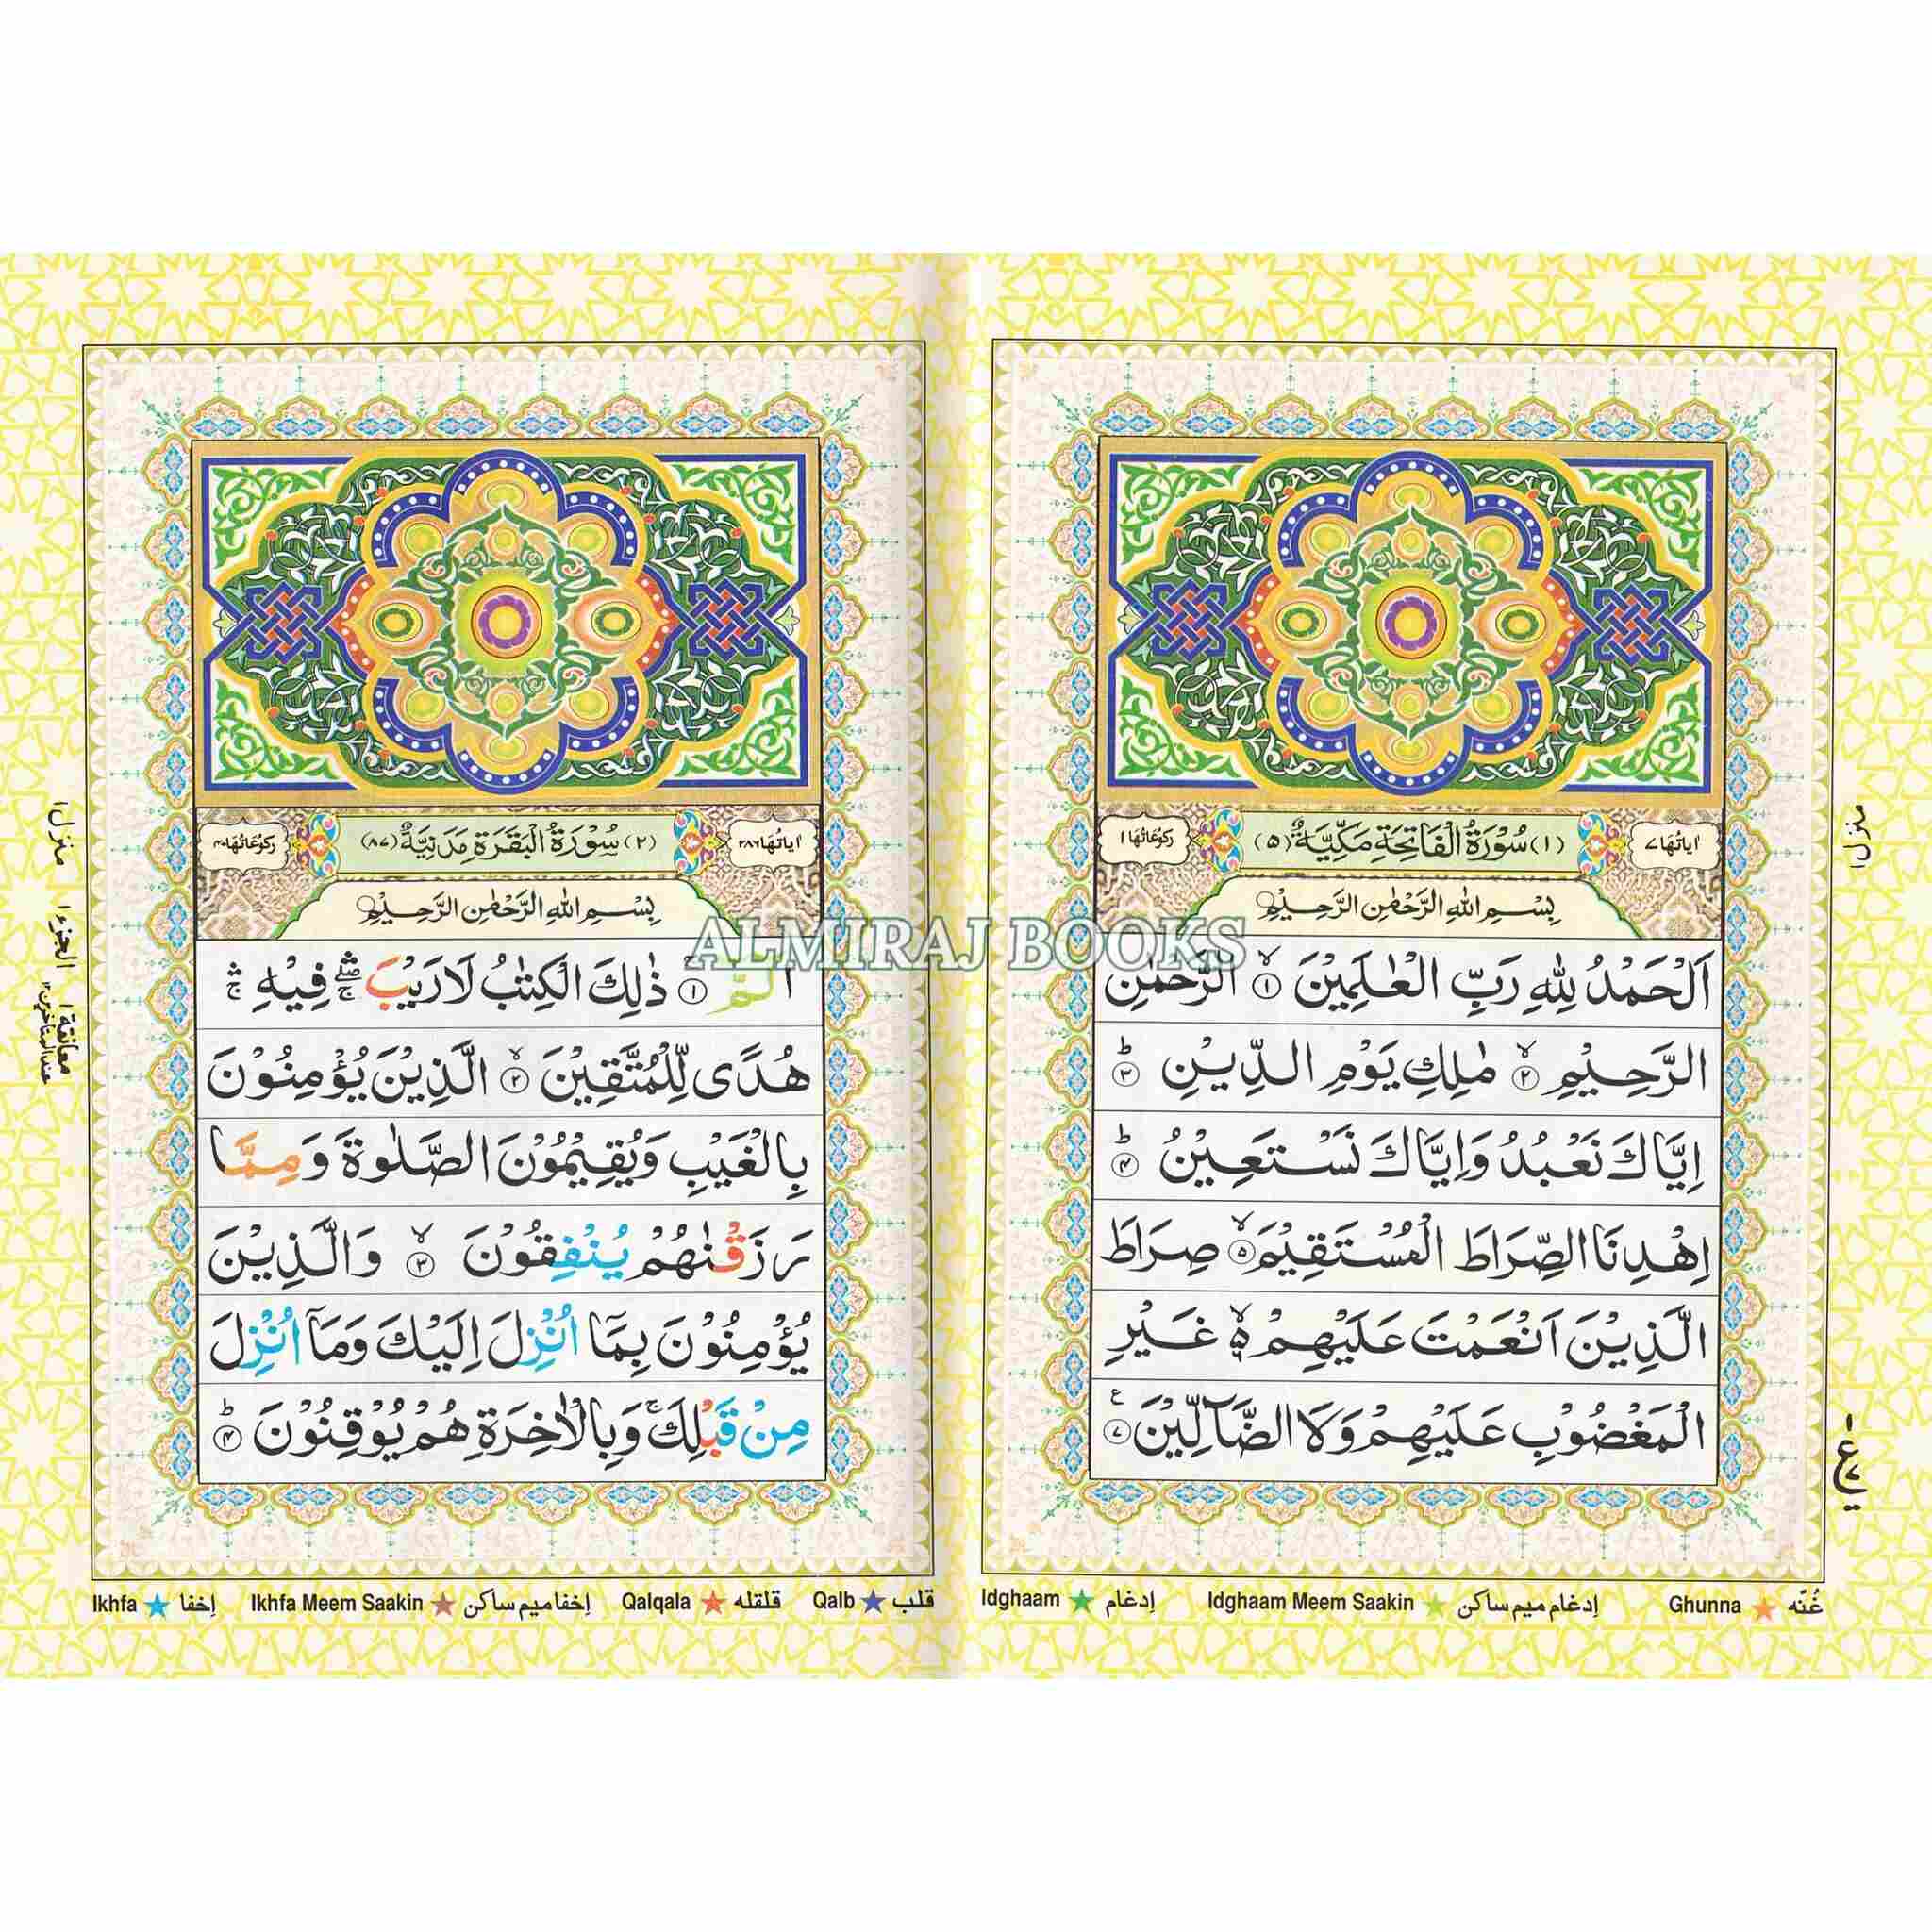 اٰیاتُهَا ٧
(١) سُوْرَةُ الْفَاتِحَةِ مَكِّيَّةٌ (٥)
رُكُوْعَاتُهَا ١
بِسْمِ اللّٰهِ الرَّحْمٰنِ الرَّحِيْمِ
اَلْحَمْدُ لِلّٰهِ رَبِّ الْعٰلَمِيْنَ ۙ ١ الرَّحْمٰنِ
الرَّحِيْمِ ۙ ٢ مٰلِكِ يَوْمِ الدِّيْنِ ؕ ٣
اِيَّاكَ نَعْبُدُ وَاِيَّاكَ نَسْتَعِيْنُ ؕ ٤
اِهْدِنَا الصِّرَاطَ الْمُسْتَقِيْمَ ۙ ٥ صِرَاطَ
الَّذِيْنَ اَنْعَمْتَ عَلَيْهِمْ ۙ ٦ غَيْرِ
الْمَغْضُوْبِ عَلَيْهِمْ وَلَا الضَّآلِّيْنَ ٧ ع
منزل ١
Idghaam إدغام Idghaam Meem Saakin إدغام ميم ساكن Ghunna غُنّه
اٰیاتُهَا ٢٨٦
(٢) سُوْرَةُ الْبَقَرَةِ مَدَنِيَّةٌ (٨٧)
رُكُوْعَاتُهَا ٤٠
بِسْمِ اللّٰهِ الرَّحْمٰنِ الرَّحِيْمِ
الٓمّٓ ۚ ١ ذٰلِكَ الْكِتٰبُ لَا رَيْبَ ۛ فِيْهِ ۛ
هُدًى لِّلْمُتَّقِيْنَ ۙ ٢ الَّذِيْنَ يُؤْمِنُوْنَ
بِالْغَيْبِ وَيُقِيْمُوْنَ الصَّلٰوةَ وَمِمَّا
رَزَقْنٰهُمْ يُنْفِقُوْنَ ۙ ٣ وَالَّذِيْنَ
يُؤْمِنُوْنَ بِمَآ اُنْزِلَ اِلَيْكَ وَمَآ اُنْزِلَ
مِنْ قَبْلِكَ ۚ وَبِالْاٰخِرَةِ هُمْ يُوْقِنُوْنَ ؕ ٤
منزل ١
الجزء ١
معانقة ١
Ikhfa إخفا Ikhfa Meem Saakin إخفا ميم ساكن Qalqala قلقله Qalb قلب
ALMIRAJ BOOKS